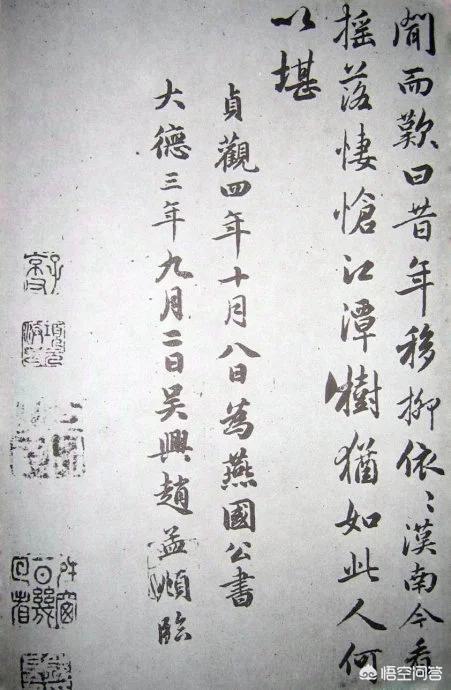 閒而歎曰昔年移柳依〻漢南今看
摇落悽愴江潭樹猶如此人何
以堪
貞觀四年十月八日為燕國公書
大德三年九月二日吴興趙孟頫臨
悟空问答